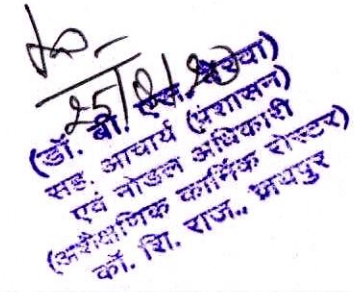 25/8/20
(डॉ. बी. एस. बैरवा)
सह. आचार्य (प्रशासन)
एवं नोडल अधिकारी
(अशैक्षणिक कार्मिक रोस्टर)
कॉ. शि. राज., जयपुर